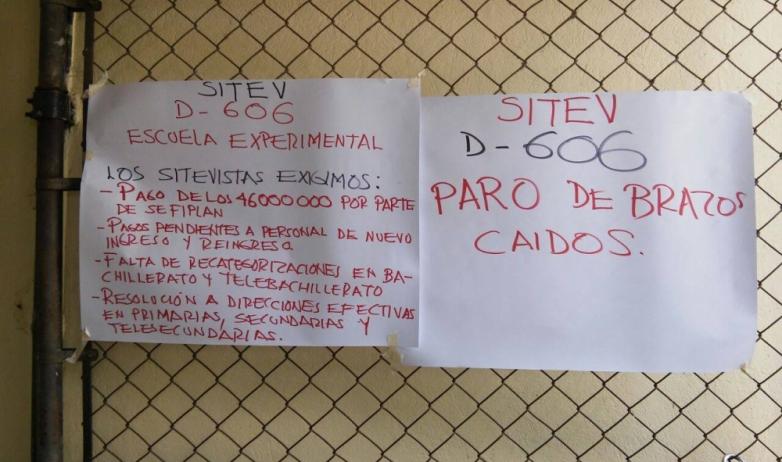 SITEV
D-606
ESCUELA EXPERIMENTAL
LOS SITEVISTAS EXIGIMOS:
- PAGO DE LOS 46000000 POR PARTE
DE SEFIPLAN
- PAGOS PENDIENTES A PERSONAL DE NUEVO
INGRESO Y REINGRESO
- FALTA DE RECATEGORIZACIONES EN BA-
CHILLERATO Y TELEBACHILLERATO
- RESOLUCIÓN A DIRECCIONES EFECTIVAS
EN PRIMARIAS, SECUNDARIAS Y
TELESECUNDARIAS.
SITEV
D-606
PARO DE BRAZOS
CAIDOS.